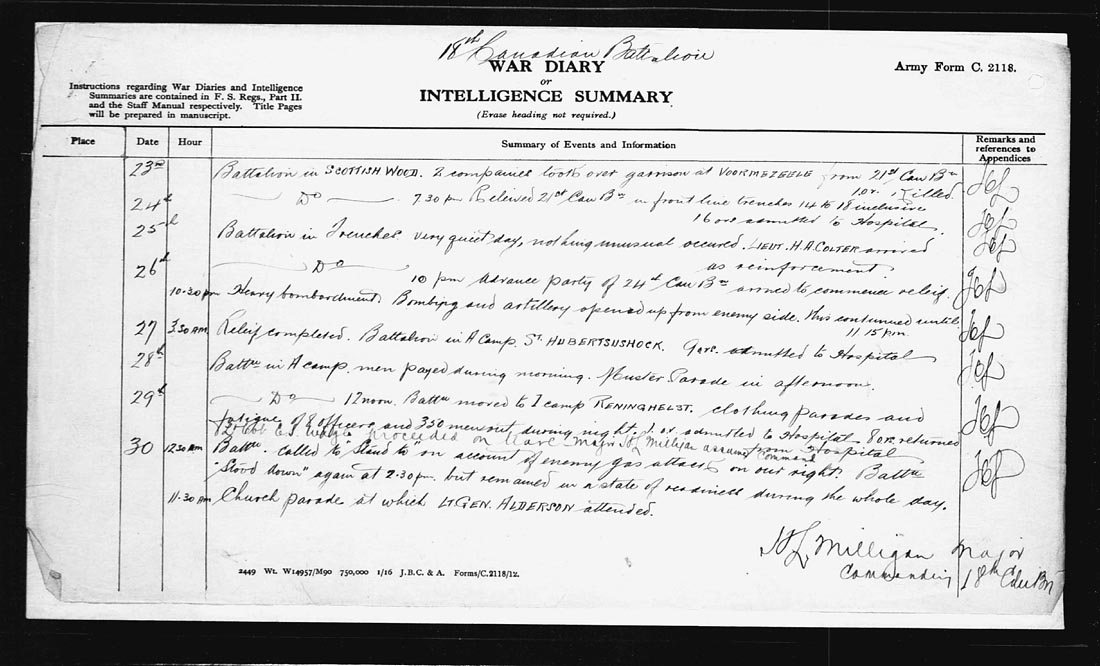 18th Canadian Battalion
WAR DIARY
or
INTELLIGENCE SUMMARY
(Erase heading not required.)
Army Form C. 2118.
Instructions regarding War Diaries and Intelligence
Summaries are contained in F. S. Regs., Part II.
and the Staff Manual respectively. Title Pages
will be prepared in manuscript.
Place Date Hour Summary of Events and Information Remarks and
references to
Appendices
23rd Battalion in SCOTTISH WOOD. 2 companies took over garrison at VOORMEZEELE from 21st Can Bn
1 o.r. Killed.
24th Do 7.30 pm Relieved 21st Can Bn in front line trenches 14 to 18 inclusive
16 o.r. admitted to Hospital.
25th Battalion in Trenches. Very quiet day, nothing unusual occured. LIEUT. H.A. COLTER arrived
as reinforcement.
26th Do 10 pm Advance party of 24th Can Bn arrived to commence releif.
10.30 pm Heavy bombardment. Bombing and artillery opened up from enemy side. this continued until
11 15 pm.
27 3.30 AM Releif completed. Battalion in A Camp. ST. HUBERTSUSHOCK. admitted to Hospital
28th Battn in A camp. men payed during morning. Muster Parade in afternoon.
29th Do 12 noon. Battn moved to I camp RENINGHELST. clothing parades and
fatigue of 8 officers and 350 men out during night. 1 o.r. admitted to Hospital 8 O.R. returned
from Hospital
proceeded on leave Major H L Milligan assumes Command
30 12.30 AM Battn. called to "Stand to" on account of enemy gas attack on our right. Battn
"Stood down" again at 2.30 pm. but remained in a state of readiness during the whole day.
11.30 AM Church parade at which LT. GEN. ALDERSON attended.
H L Milligan Major
Commanding 18th Cdn Bn
2449 Wt. W14957/M90 750,000 1/16 J.B.C. & A. Forms/C.2118/12.